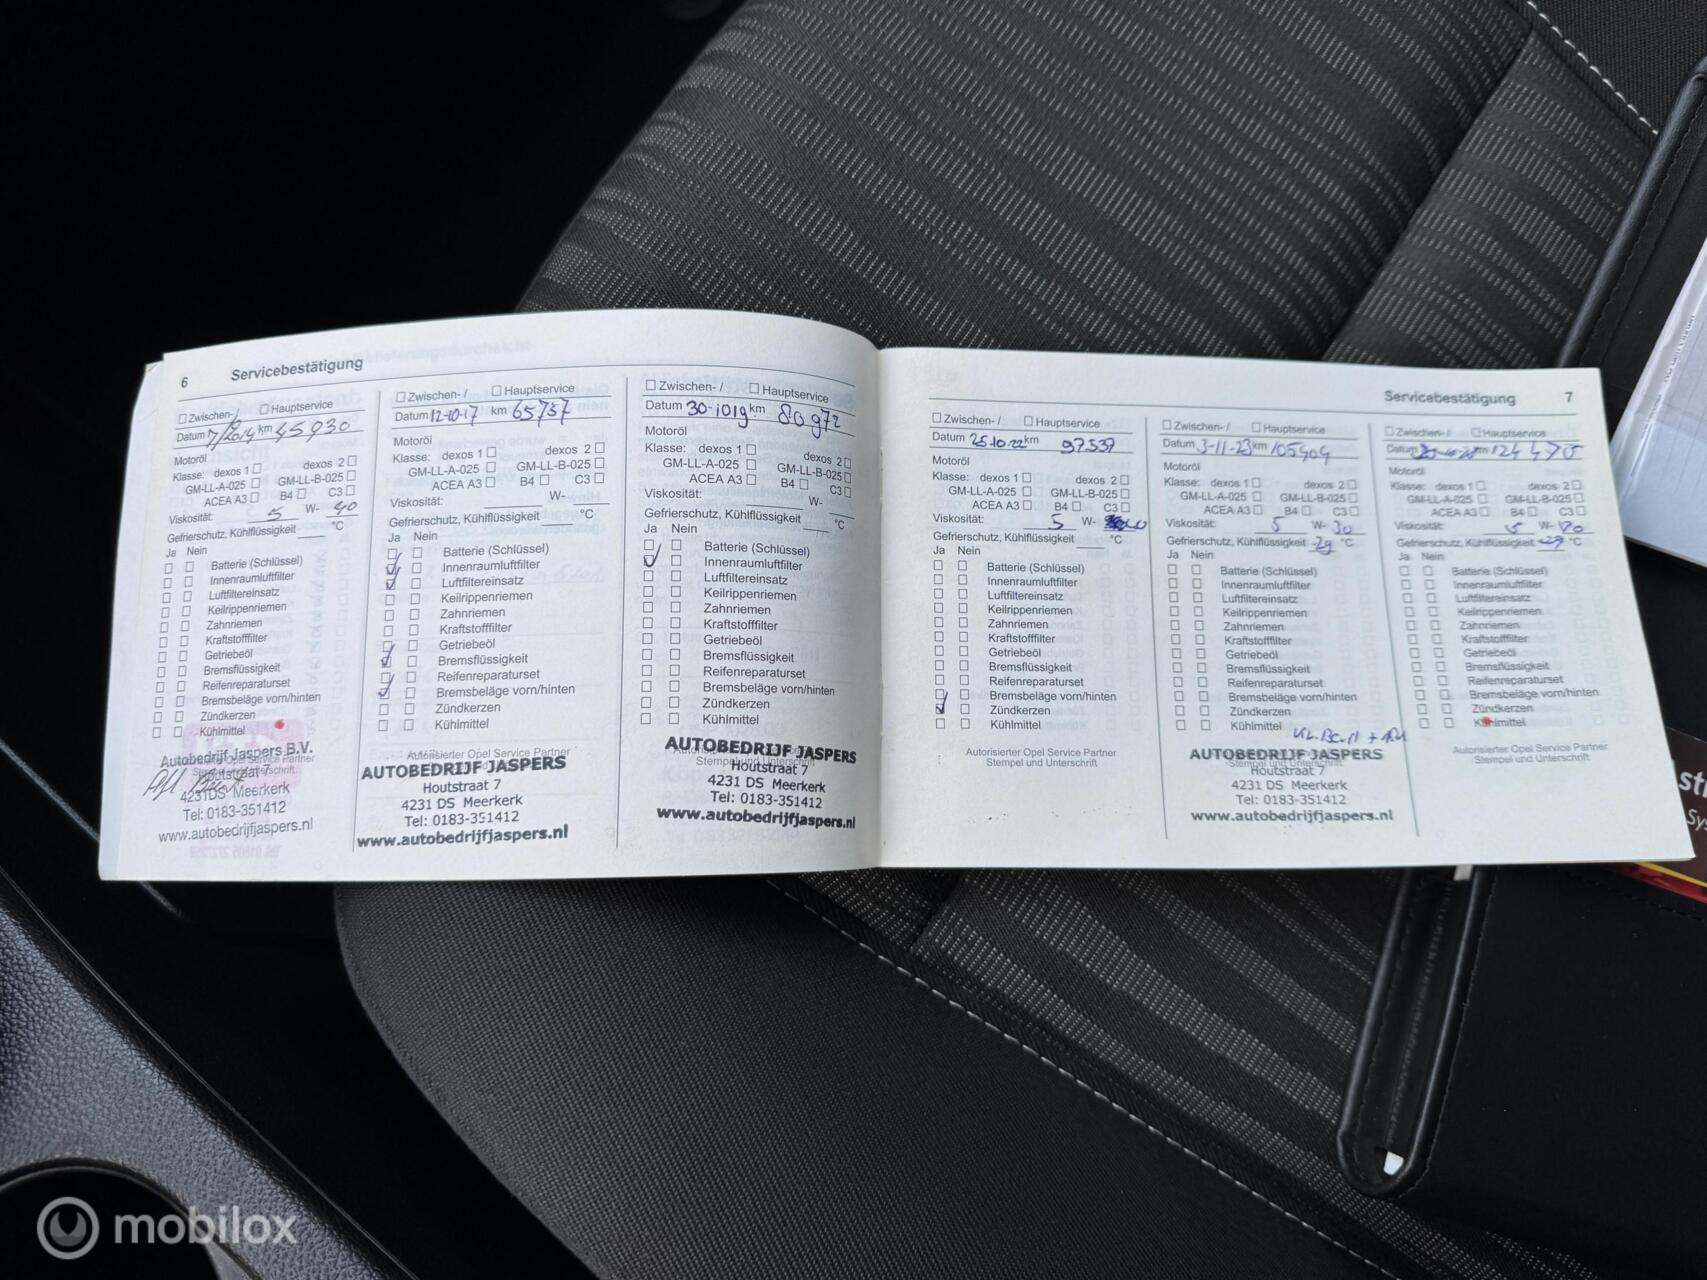 6 Servicebestätigung
Zwischen-/ Hauptservice
Datum 7/2014 km 45930
Motoröl
Klasse: dexos 1 dexos 2
GM-LL-A-025 GM-LL-B-025
ACEA A3 B4 C3
Viskosität: 5 W- 40
Gefrierschutz, Kühlflüssigkeit °C
Ja Nein
Batterie (Schlüssel)
Innenraumluftfilter
Luftfiltereinsatz
Keilrippenriemen
Zahnriemen
Kraftstofffilter
Getriebeöl
Bremsflüssigkeit
Reifenreparaturset
Bremsbeläge vorn/hinten
Zündkerzen
Kühlmittel
Autobedrijf Jaspers B.V.
Houtstraat 7
4231DS Meerkerk
Tel: 0183-351412
www.autobedrijfjaspers.nl
Zwischen- / Hauptservice
Datum 12-10-17 km 65757
Motoröl
Klasse: dexos 1 dexos 2
GM-LL-A-025 GM-LL-B-025
ACEA A3 B4 C3
Viskosität: W-
Gefrierschutz, Kühlflüssigkeit °C
Ja Nein
Batterie (Schlüssel)
Innenraumluftfilter
Luftfiltereinsatz
Keilrippenriemen
Zahnriemen
Kraftstofffilter
Getriebeöl
Bremsflüssigkeit
Reifenreparaturset
Bremsbeläge vorn/hinten
Zündkerzen
Kühlmittel
Autorisierter Opel Service Partner
AUTOBEDRIJF JASPERS
Houtstraat 7
4231 DS Meerkerk
Tel: 0183-351412
www.autobedrijfjaspers.nl
Zwischen- / Hauptservice
Datum 30-1019 km 80972
Motoröl
Klasse: dexos 1 dexos 2
GM-LL-A-025 GM-LL-B-025
ACEA A3 B4 C3
Viskosität: W-
Gefrierschutz, Kühlflüssigkeit °C
Ja Nein
Batterie (Schlüssel)
Innenraumluftfilter
Luftfiltereinsatz
Keilrippenriemen
Zahnriemen
Kraftstofffilter
Getriebeöl
Bremsflüssigkeit
Reifenreparaturset
Bremsbeläge vorn/hinten
Zündkerzen
Kühlmittel
AUTOBEDRIJF JASPERS
Stempel und Unterschrift
Houtstraat 7
4231 DS Meerkerk
Tel: 0183-351412
www.autobedrijfjaspers.nl
Servicebestätigung 7
Zwischen- / Hauptservice
Datum 25-10-22 km 97537
Motoröl
Klasse: dexos 1 dexos 2
GM-LL-A-025 GM-LL-B-025
ACEA A3 B4 C3
Viskosität: 5 W-
Gefrierschutz, Kühlflüssigkeit °C
Ja Nein
Batterie (Schlüssel)
Innenraumluftfilter
Luftfiltereinsatz
Keilrippenriemen
Zahnriemen
Kraftstofffilter
Getriebeöl
Bremsflüssigkeit
Reifenreparaturset
Bremsbeläge vorn/hinten
Zündkerzen
Kühlmittel
Autorisierter Opel Service Partner
Stempel und Unterschrift
Zwischen- / Hauptservice
Datum 3-11-23 km 105404
Motoröl
Klasse: dexos 1 dexos 2
GM-LL-A-025 GM-LL-B-025
ACEA A3 B4 C3
Viskosität: 5 W- 30
Gefrierschutz, Kühlflüssigkeit -29 °C
Ja Nein
Batterie (Schlüssel)
Innenraumluftfilter
Luftfiltereinsatz
Keilrippenriemen
Zahnriemen
Kraftstofffilter
Getriebeöl
Bremsflüssigkeit
Reifenreparaturset
Bremsbeläge vorn/hinten
Zündkerzen
Kühlmittel
AUTOBEDRIJF JASPERS
Stempel und Unterschrift
Houtstraat 7
4231 DS Meerkerk
Tel: 0183-351412
www.autobedrijfjaspers.nl
Zwischen- / Hauptservice
Datum km 124470
Motoröl
Klasse: dexos 1 dexos 2
GM-LL-A-025 GM-LL-B-025
ACEA A3 B4 C3
Viskosität: 5 W-
Gefrierschutz, Kühlflüssigkeit -29 °C
Ja Nein
Batterie (Schlüssel)
Innenraumluftfilter
Luftfiltereinsatz
Keilrippenriemen
Zahnriemen
Kraftstofffilter
Getriebeöl
Bremsflüssigkeit
Reifenreparaturset
Bremsbeläge vorn/hinten
Zündkerzen
Kühlmittel
Autorisierter Opel Service Partner
Stempel und Unterschrift
mobilox